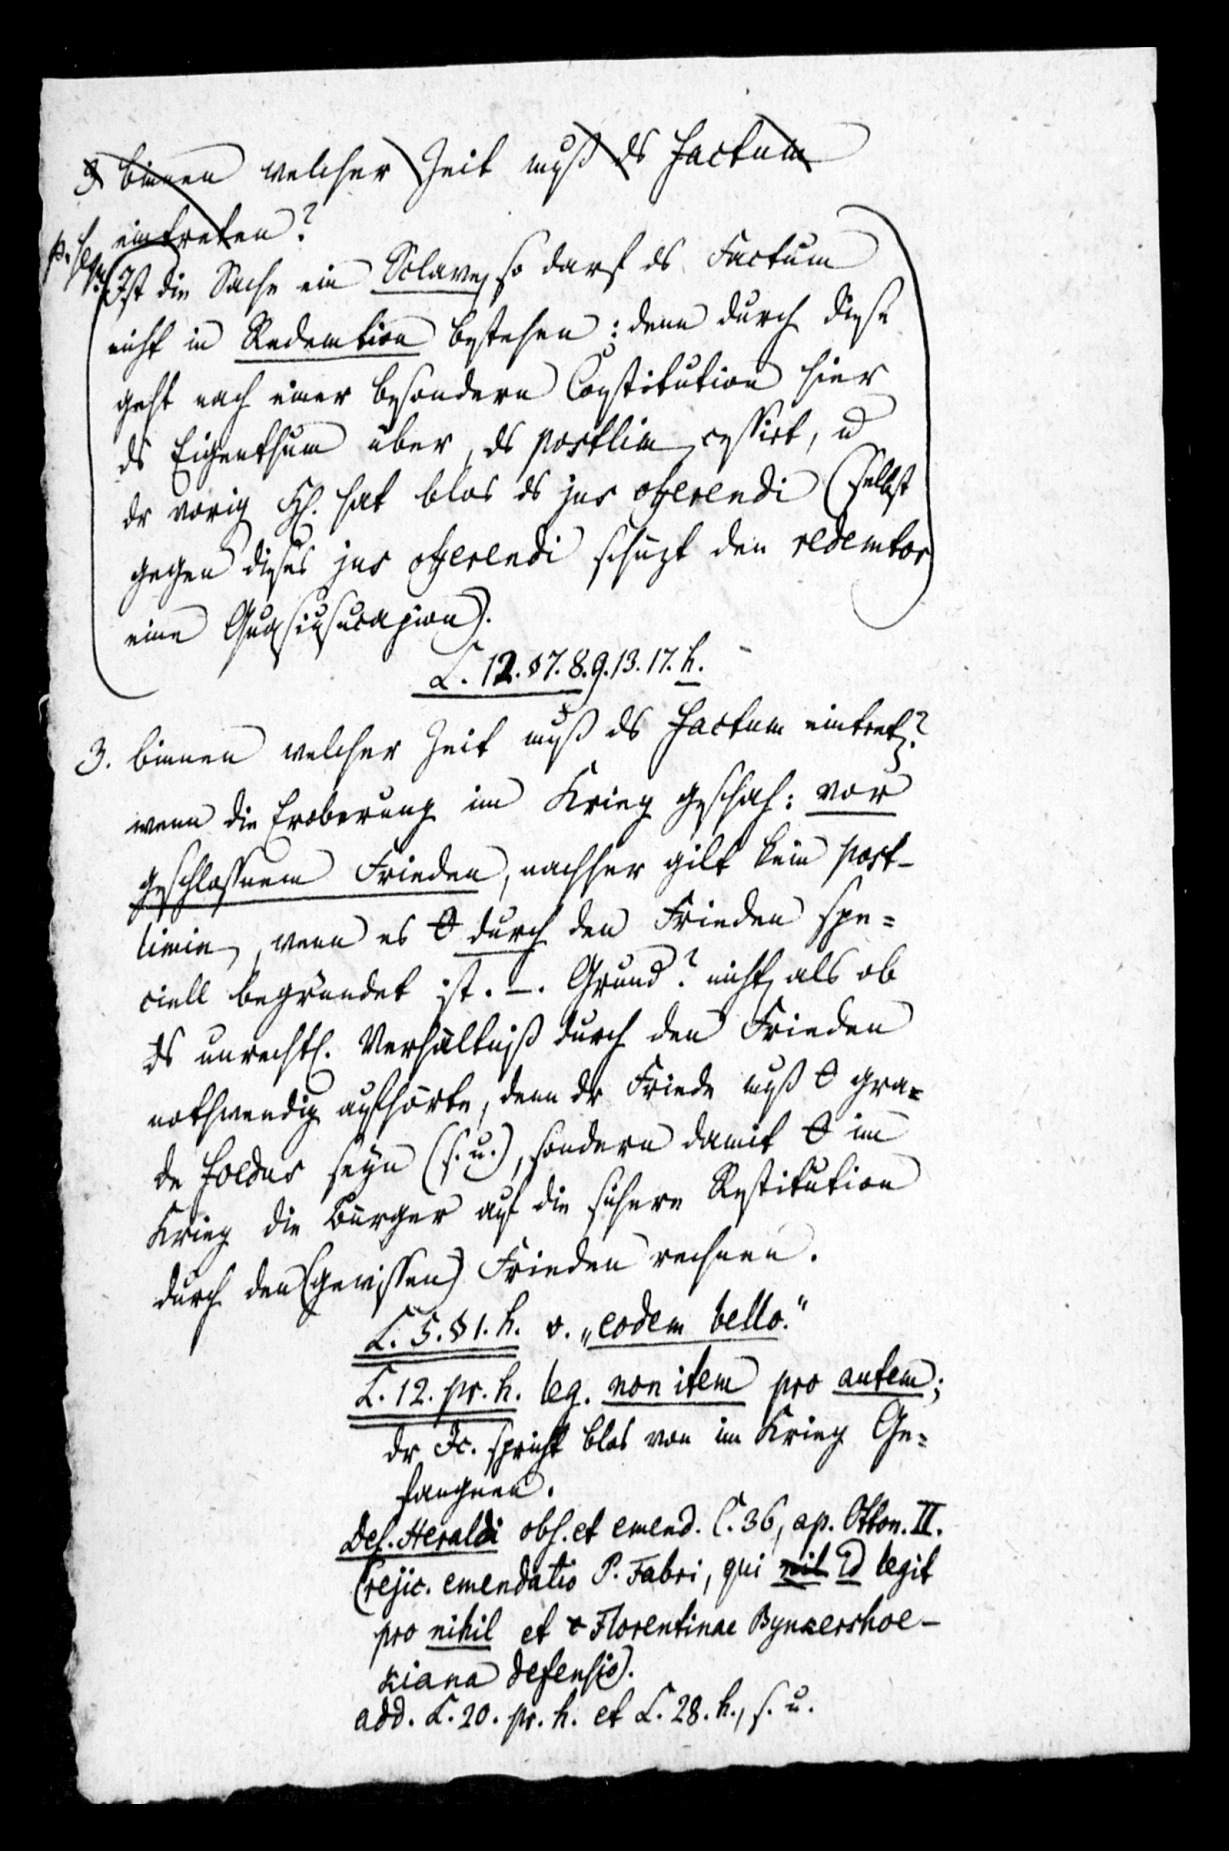 3 binnen welcher Zeit muß ds Factum
eintreten?
p. seq.
Ist die Sache ein Sclave, so darf ds Factum
nicht in Redemtion bestehen: denn durch diese
geht nach einer besondern Constitution hier
ds Eigenthum über, ds postlim. cessirt, u
dr vorig. H. hat blos ds jus offerendi (selbst
gegen dieses jus offerendi schüzt den redemtor
eine Quasiusucapion).
L. 12. §7. 8. 9. 13. 17. h.
3. binnen welcher Zeit muß ds Factum eintret.?
wenn die Eroberung im Krieg geschah: vor
geschloßnem Frieden, nachher gilt kein post-
limin., wenn es θ durch den Frieden spe=
ciell begründet ist. —. Grund? nicht als ob
ds unrechtl. Verhältniß durch den Frieden
nothwendig aufhörte, denn dr Friede muß θ gra=
de foedus seyn (s. u.), sondern damit θ im
Krieg die Bürger auf die sichere Restitution
durch den (gewissen) Frieden rechnen.
L. 5. § 1. h. v. „eodem bello."
L. 12. pr. h. leg. non item pro autem;
dr Jc. spricht blos von im Krieg Ge=
fangnen.
Des. Heraldi obs. et emend. C. 36, ap. Otton. II.
(rejic. emendatio P. Fabri, qui nil id legit
pro nihil et Florentinae Bynkershoe-
kiana defensio).
add. L. 20. pr. h. et L. 28. h., s. u.